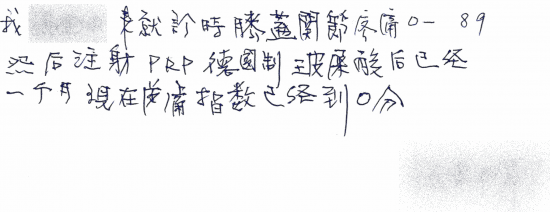 我 來就診時膝蓋關節疼痛0-89
然后注射PRP德國制玻尿酸后已经
一个月現在疼痛指数已经到0分